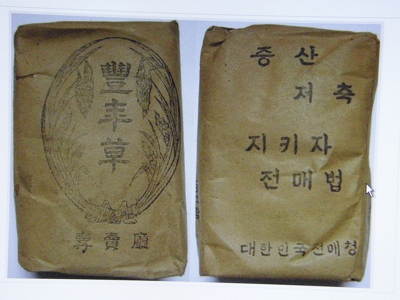 豐年草
專賣廳
증산
저축
지키자
전매법
대한민국전매청